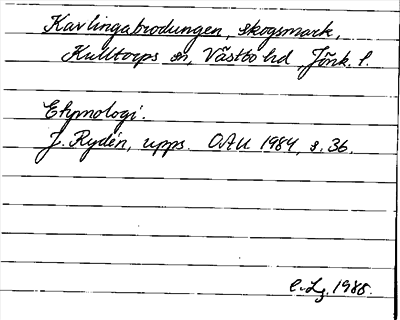 Kavlingabrodungen, skogsmark,
Kulltorps sn, Västbo hd, Jönk. l.
Etymologi.
J. Rydén, upps. OAU 1984, s. 36.
C. Lg. 1985.